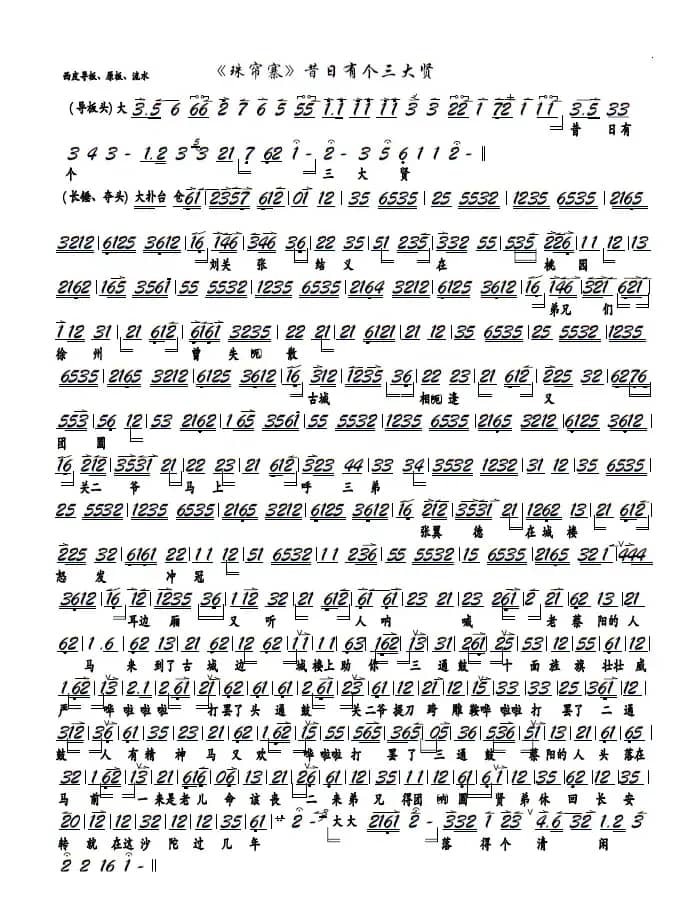 《珠帘寨》昔日有个三大贤
西皮导板、原板、流水
(导板头) 大 3.5 6 66 2 7 6 5 55 1.1 11 11 3 3 22 1 72 1 11 3.5 33
昔 日有
3 4 3 - 1.2 3 3 21 7 62 1 - 2 - 3 5 6 1 1 2 - ‖
个 三 大 贤
(长锤、夺头) 大扑台 仓61 | 2357 612 | 01 12 | 35 6535 | 25 5532 | 1235 6535 | 2165
3212 | 6125 3612 | 16 146 | 346 36 | 22 35 | 51 235 | 332 55 | 535 226 | 11 12 | 13
刘关 张 结 义 在 桃 园
2162 | 165 3561 | 55 5532 | 1235 6535 | 2164 3212 | 6125 3612 | 16 146 | 321 621 |
弟兄 们
112 31 | 21 612 | 6161 3235 | 22 21 | 21 6121 | 21 12 | 35 6535 | 25 5532 | 1235
徐 州 曾 失 散
6535 | 2165 3212 | 6125 3612 | 16 312 | 1235 36 | 22 23 | 21 612 | 225 32 | 6276
古城 相 逢 又
553 | 56 12 | 53 2162 | 1 65 3561 | 55 5532 | 1235 6535 | 2165 3212 | 6125 3612 |
团 圆
16 212 | 3531 21 | 22 23 | 21 612 | 323 44 | 33 34 | 3532 1232 | 31 12 | 35 6535 |
关二 爷 马 上 呼 三 弟
25 5532 | 1235 6535 | 2165 3212 | 6125 3612 | 16 212 | 3531 21 | 1262 13 | 21 12 |
张翼 德 在 城 楼
225 32 | 6161 22 | 11 12 | 51 6532 | 11 236 | 55 5532 | 15 6535 | 2165 32 1 | 444
怒 发 冲 冠
3612 | 16 12 | 1235 36 | 1 12 | 31 612 | 61 23 | 21 23 | 21 261 | 2 21 | 62 13 | 21
耳边 厢 又 听 人 呐 喊 老 蔡 阳的 人
62 | 1. 6 | 62 13 | 21 62 | 12 62 | 11 11 | 63 162 | 13 31 | 261 25 | 53 12 | 55 61
马 来 到了 古 城 边 城 楼上 助 你 三 通 鼓 十 面 旌 旗 壮 壮 威
| 1.62 13 | 2.1 2 | 261 21 | 62 61 | 12 62 | 12 51 | 21 12 | 15 | 33 33 | 25 61 | 12
严 哗 啦啦 啦 打 罢了 头 通 鼓 关 二爷 提刀 跨 雕 鞍哗 啦啦 打 罢 了 二 通
312 36 | 61 12 | 11 62 | 61 12 | 15 55 | 565 365 | 05 36 | 536 53 | 15 61 | 23 13 |
鼓 人 有精 神 马 又 欢 哗 啦啦 打 罢 了 三 通 鼓 蔡 阳的 人 头 落在
32 1.62 | 13 21 | 616 06 | 13 21 | 13 26 | 31 12 | 61 61 | 1 12 | 35 62 | 35 12
马 前 一来是 老儿 命 该 丧 二 来 弟 兄 得团 圆 贤 弟 休 回 长 安
20 12 | 12 32 | 12 12 | 35 61 | 2 - 大大 2161 2 - 32 1 23 4.6 32 1.2 3
转 就 在 这 沙 陀 过 几 年 落 得 个 清 闲
2 2 16 1 - ‖